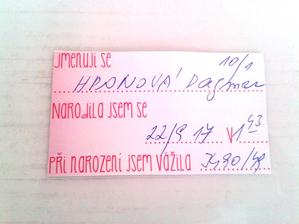 JMENUJI SE 10/1
HRONOVÁ Dagmar
NARODILA JSEM SE
22/9 17 V 1 43
PŘI NAROZENÍ JSEM VÁŽILA 3490/49